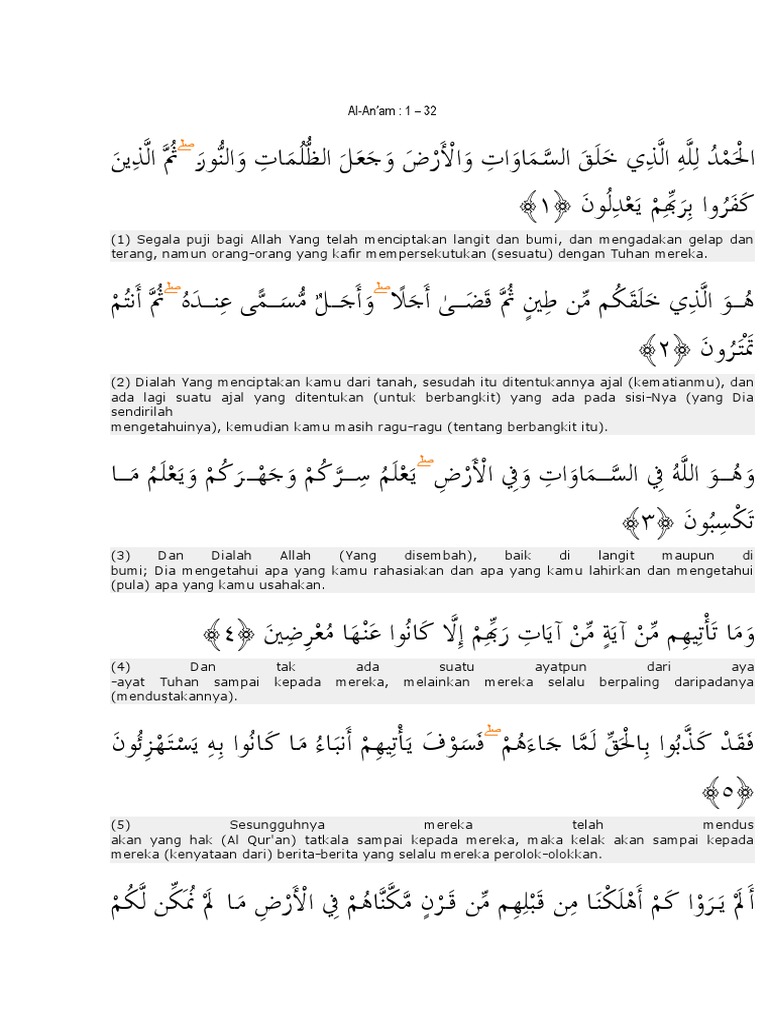 Al-An'am : 1 – 32
الْحَمْدُ لِلَّهِ الَّذِي خَلَقَ السَّمَاوَاتِ وَالْأَرْضَ وَجَعَلَ الظُّلُمَاتِ وَالنُّورَ ۖ ثُمَّ الَّذِينَ
كَفَرُوا بِرَبِّهِمْ يَعْدِلُونَ ﴿١﴾
(1) Segala puji bagi Allah Yang telah menciptakan langit dan bumi, dan mengadakan gelap dan
terang, namun orang-orang yang kafir mempersekutukan (sesuatu) dengan Tuhan mereka.
هُوَ الَّذِي خَلَقَكُم مِّن طِينٍ ثُمَّ قَضَىٰ أَجَلًا ۖ وَأَجَلٌ مُّسَمًّى عِندَهُ ۖ ثُمَّ أَنتُمْ
تَمْتَرُونَ ﴿٢﴾
(2) Dialah Yang menciptakan kamu dari tanah, sesudah itu ditentukannya ajal (kematianmu), dan
ada lagi suatu ajal yang ditentukan (untuk berbangkit) yang ada pada sisi-Nya (yang Dia
sendirilah
mengetahuinya), kemudian kamu masih ragu-ragu (tentang berbangkit itu).
وَهُوَ اللَّهُ فِي السَّمَاوَاتِ وَفِي الْأَرْضِ ۖ يَعْلَمُ سِرَّكُمْ وَجَهْرَكُمْ وَيَعْلَمُ مَا
تَكْسِبُونَ ﴿٣﴾
(3) Dan Dialah Allah (Yang disembah), baik di langit maupun di
bumi; Dia mengetahui apa yang kamu rahasiakan dan apa yang kamu lahirkan dan mengetahui
(pula) apa yang kamu usahakan.
وَمَا تَأْتِيهِم مِّنْ آيَةٍ مِّنْ آيَاتِ رَبِّهِمْ إِلَّا كَانُوا عَنْهَا مُعْرِضِينَ ﴿٤﴾
(4) Dan tak ada suatu ayatpun dari aya
-ayat Tuhan sampai kepada mereka, melainkan mereka selalu berpaling daripadanya
(mendustakannya).
فَقَدْ كَذَّبُوا بِالْحَقِّ لَمَّا جَاءَهُمْ ۖ فَسَوْفَ يَأْتِيهِمْ أَنبَاءُ مَا كَانُوا بِهِ يَسْتَهْزِئُونَ
﴿٥﴾
(5) Sesungguhnya mereka telah mendus
akan yang hak (Al Qur'an) tatkala sampai kepada mereka, maka kelak akan sampai kepada
mereka (kenyataan dari) berita-berita yang selalu mereka perolok-olokkan.
أَلَمْ يَرَوْا كَمْ أَهْلَكْنَا مِن قَبْلِهِم مِّن قَرْنٍ مَّكَّنَّاهُمْ فِي الْأَرْضِ مَا لَمْ نُمَكِّن لَّكُمْ